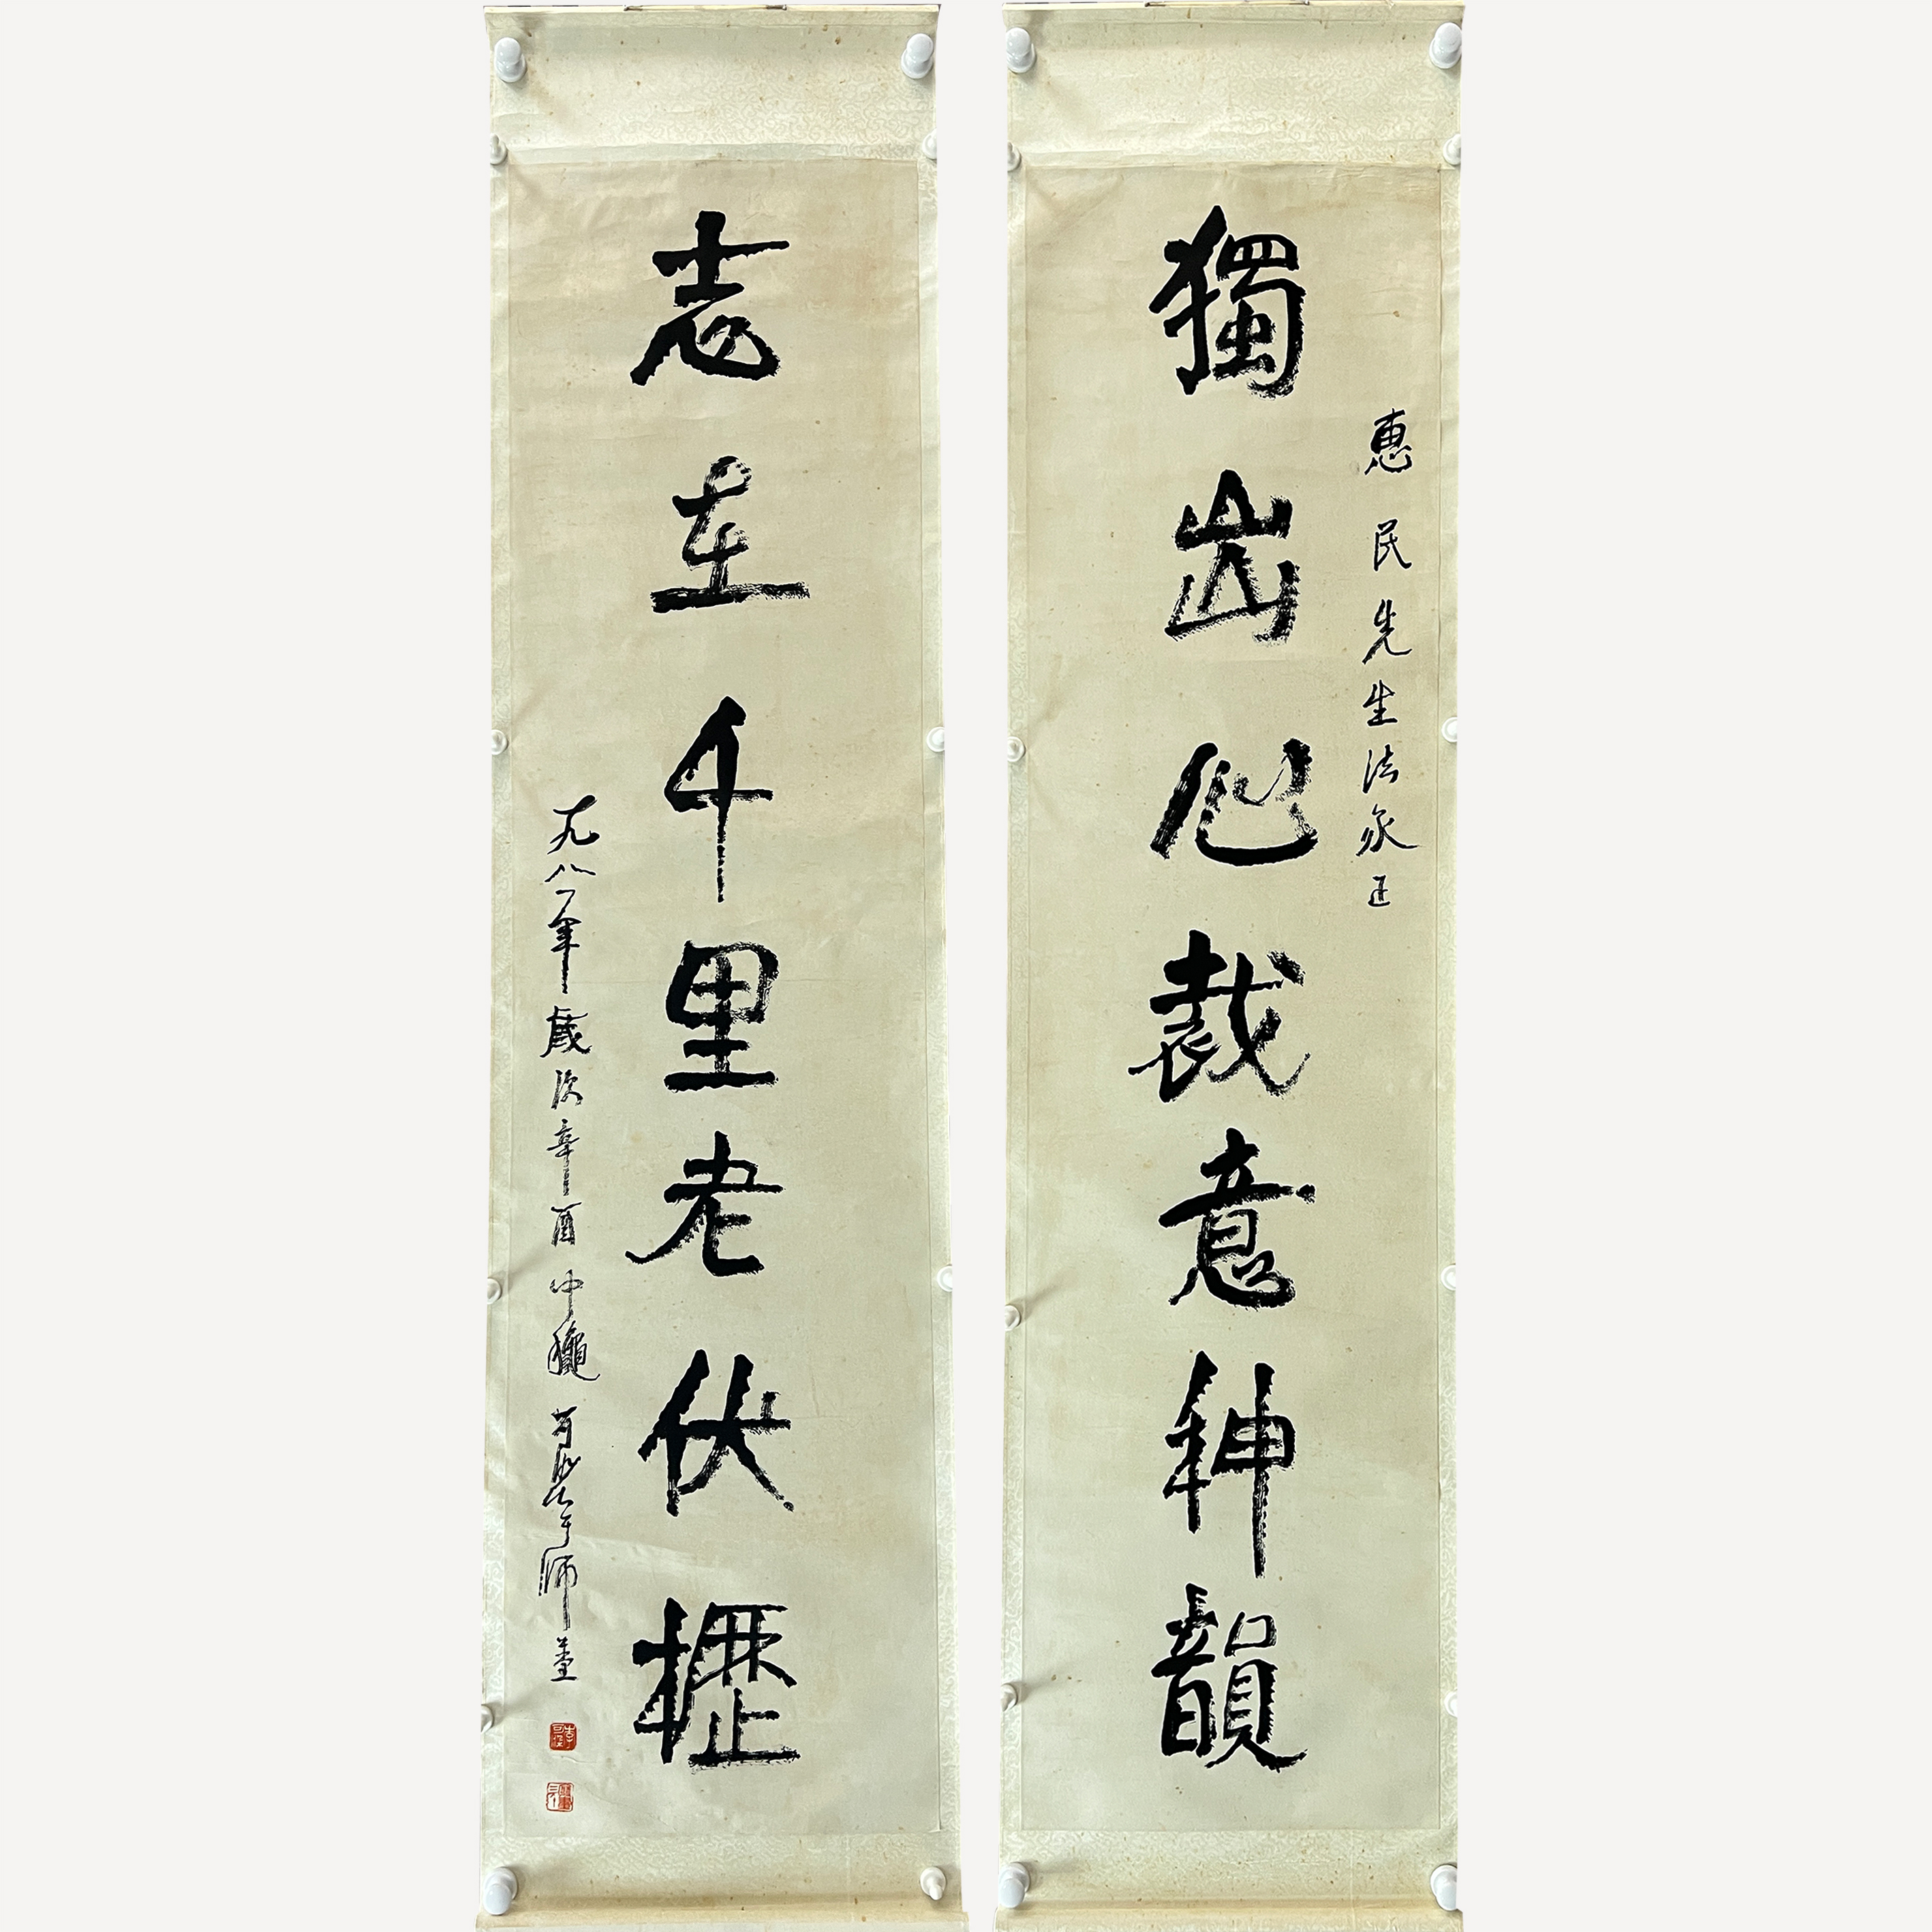 惠民先生法家正
獨出心裁意神韻
志在千里老伏櫪
一九八一年歲次辛酉中龝可染于師堂